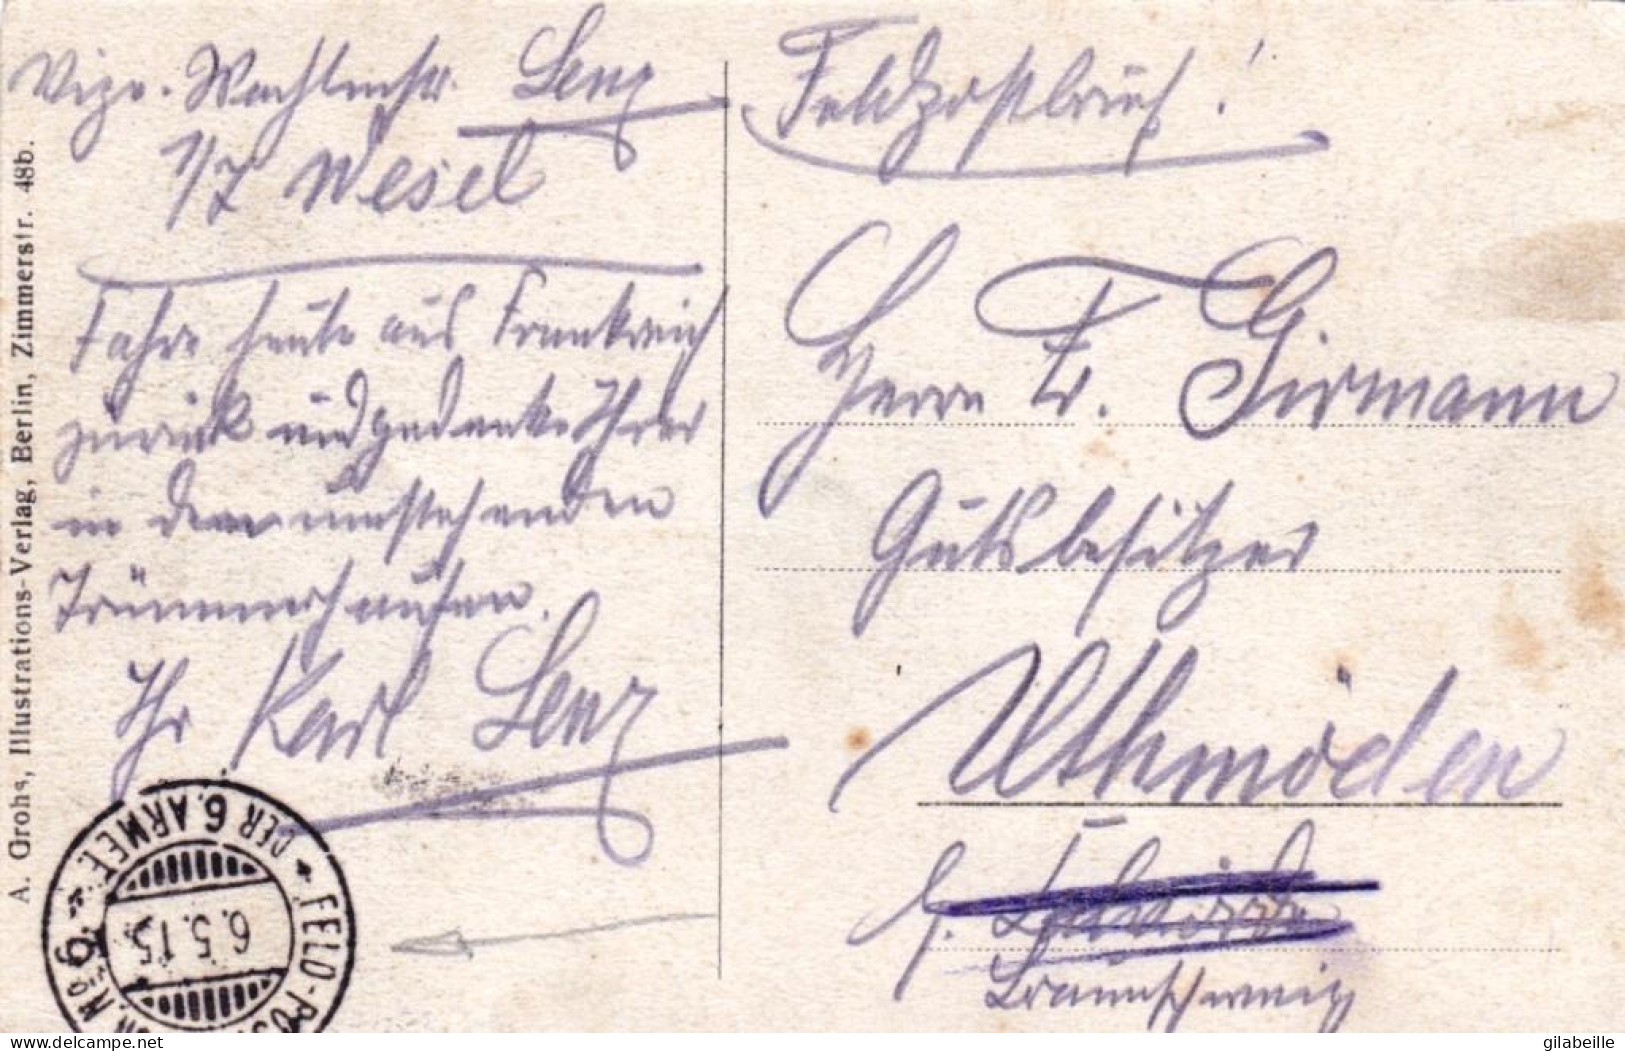 Vize-Wachtmstr. Lenz
1/7 Wesel
Fahre heute aus Frankreich
zurück und gedenke Ihrer
in dem umstehenden
Trümmerhaufen.
Ihr Karl Lenz
Feldpostbrief!
Herrn Fr. Girmann
Gutsbesitzer
Uthmöden
b.
Braunschweig
A. Grohs, Illustrations-Verlag, Berlin, Zimmerstr. 48b.
FELD-POST
DER 6. ARMEE.
6.5.15.
delcampe.net
gilabeille